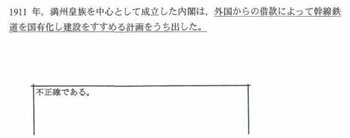 1911 年，満州皇族を中心として成立した内閣は，外国からの借款によって幹線鉄
道を国有化し建設をすすめる計画をうち出した。
不正確である。